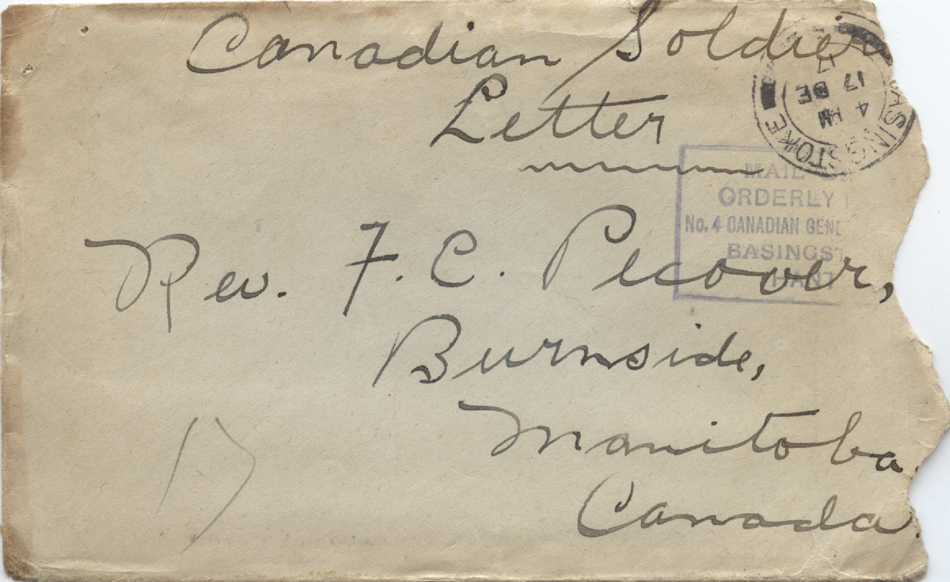 Canadian Soldier
Letter
BASINGSTOKE
4 PM
17 DE
17
MAIL
ORDERLY
No. 4 CANADIAN GENE
BASINGST
HANT
Rev. F. C. Pecover,
Burnside,
Manitoba
Canada.